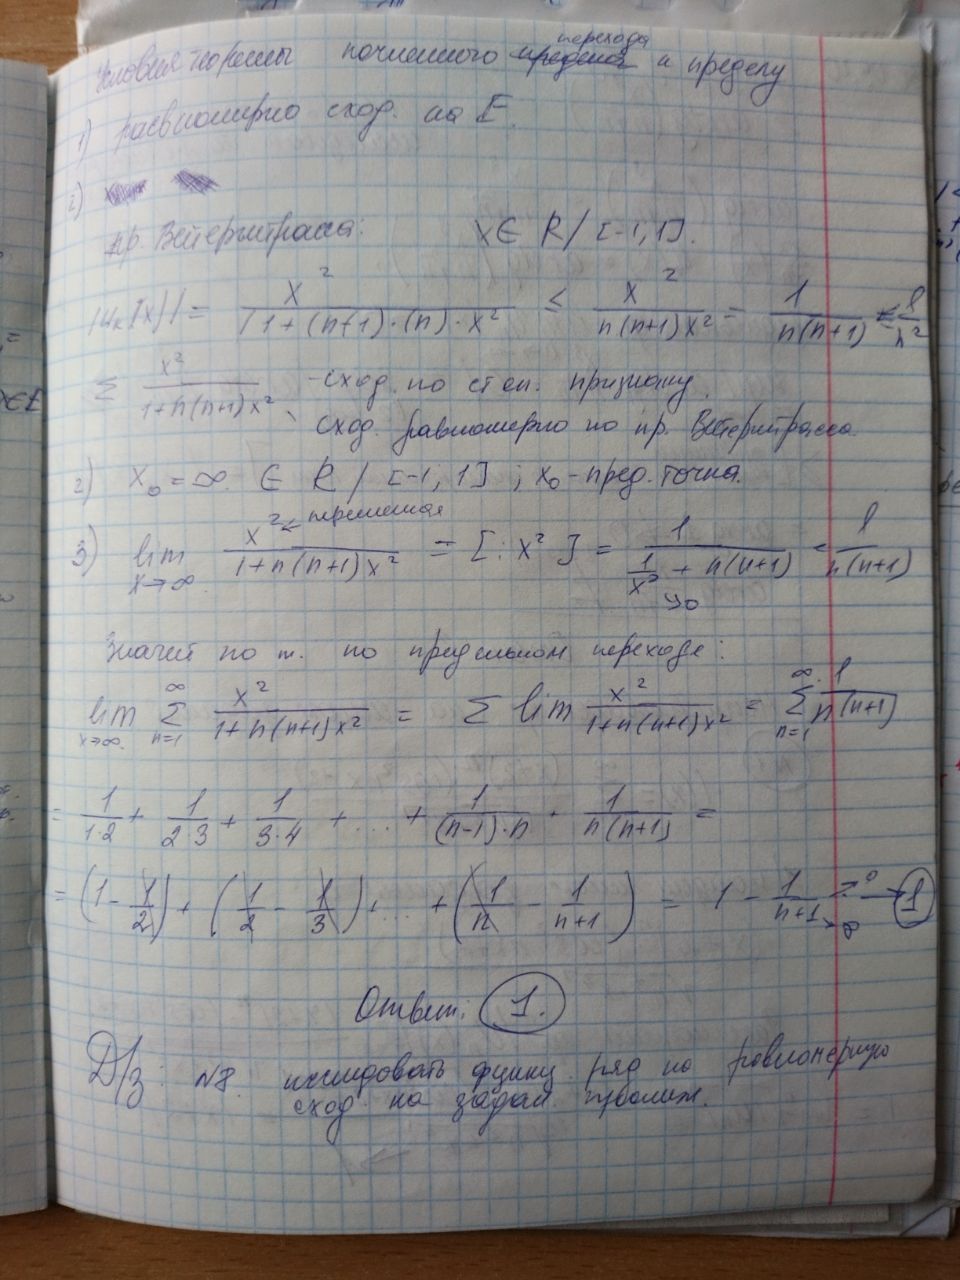 Условия теоремы почленного перехода к пределу
1) равномерно сход. на E.
2)
пр. Вейерштрасса: x ∈ R / [-1, 1].
|Uₙ(x)| = x² / (1+(n+1)·(n)·x²) ≤ x² / (n(n+1)x²) = 1 / (n(n+1)) ≤ 1/n²
Σ x² / (1+n(n+1)x²) - сход. по степ. признаку,
сход. равномерно по пр. Вейерштрасса
2) x₀ = ∞ ∈ R / [-1; 1] ; x₀ - пред. точка.
3) lim x→∞ x² ← переменная / (1+n(n+1)x²) = [: x²] = 1 / (1/x² + n(n+1)) = 1 / (n(n+1))
↘0
Значит по т. по предельном переходе:
lim x→∞ Σ n=1 ∞ x² / (1+n(n+1)x²) = Σ lim x² / (1+n(n+1)x²) = Σ n=1 ∞ 1 / (n(n+1))
= 1/(1·2) + 1/(2·3) + 1/(3·4) + ... + 1/((n-1)·n) + 1/(n(n+1)) =
= (1 - 1/2) + (1/2 - 1/3) + ... + (1/n - 1/(n+1)) = 1 - 1/(n+1) →0 → 1
Ответ: 1.
Д/з: №8. исследовать функц. ряд на равномерную
сход. на задан. промеж.